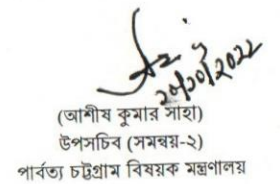 ২০/১০/২০২২
(আশীষ কুমার সাহা)
উপসচিব (সমন্বয়-২)
পার্বত্য চট্টগ্রাম বিষয়ক মন্ত্রণালয়